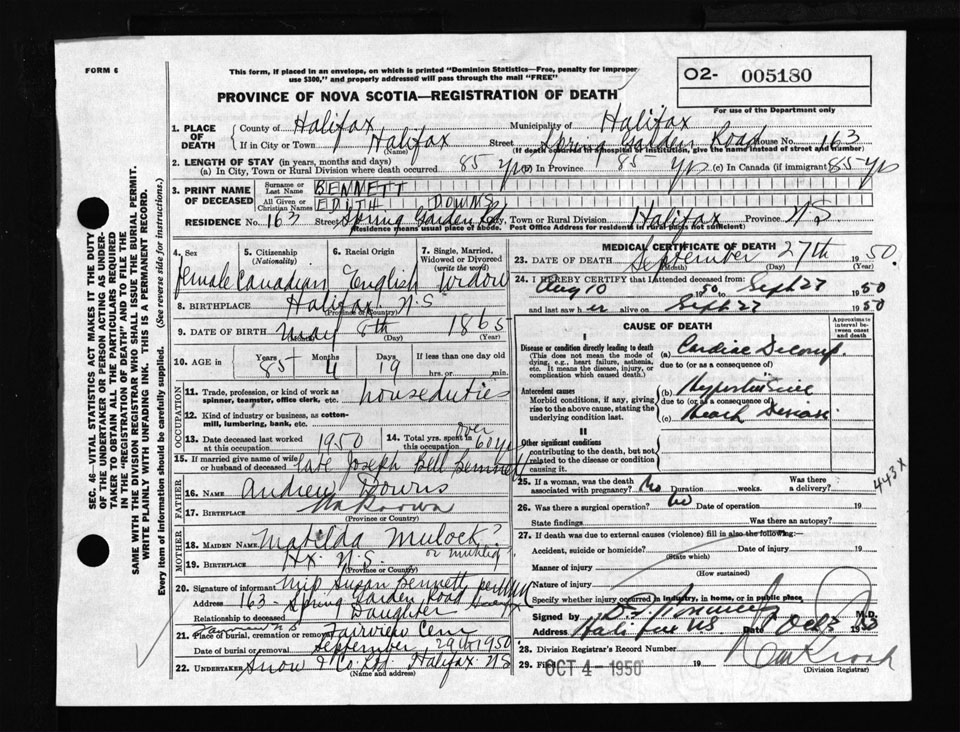 FORM 6
This form, if placed in an envelope, on which is printed "Dominion Statistics—Free, penalty for improper
use $300," and properly addressed will pass through the mail "FREE"
O2- 005180
PROVINCE OF NOVA SCOTIA—REGISTRATION OF DEATH
For use of the Department only
1. PLACE OF DEATH { County of Halifax Municipality of Halifax
If in City or Town Halifax (Name) Street Spring Garden Road House No. 163
(If death occurred in a hospital or institution, give the name instead of street and number)
2. LENGTH OF STAY (in years, months and days)
(a) In City, Town or Rural Division where death occurred 85 yrs (b) In Province 85 yrs (c) In Canada (if immigrant) 85 yrs
3. PRINT NAME OF DECEASED { Surname or Last Name BENNETT
All Given or Christian Names EDITH DOWNS
RESIDENCE No. 163 Street Spring Garden Rd City, Town or Rural Division Halifax Province N.S.
(Residence means usual place of abode. Post Office Address for residents in rural parts not sufficient)
4. Sex Female
5. Citizenship (Nationality) Canadian
6. Racial Origin English
7. Single, Married, Widowed or Divorced (write the word) Widow
8. BIRTHPLACE Halifax N.S
(Province or Country)
9. DATE OF BIRTH May 8th 1865
(Month) (Day)
10. AGE in { Years 85 Months 4 Days 19 If less than one day old
hrs. or min.
OCCUPATION
11. Trade, profession, or kind of work as
spinner, teamster, office clerk, etc. houseduties
12. Kind of industry or business, as cotton-
mill, lumbering, bank, etc.
13. Date deceased last worked at this occupation 1950 14. Total yrs. spent in this occupation over 60 yrs
15. If married give name of wife or husband of deceased late Joseph Bell Bennett
FATHER
16. NAME Andrew Downs
17. BIRTHPLACE Unknown
(Province or Country)
MOTHER
18. MAIDEN NAME Matilda Mulock?
or Muhlig
19. BIRTHPLACE Hx. N.S.
(Province or Country)
20. Signature of informant Miss Susan Bennett per
Address 163 Spring Garden Road
Relationship to deceased Daughter
21. Place of burial, cremation or removal Fairview Cem
Fairview N S
Date of burial or removal September 29th 1950
22. UNDERTAKER Snow & Co Ltd. Halifax N S
(Name and address)
MEDICAL CERTIFICATE OF DEATH
23. DATE OF DEATH September 27th 1950
(Month) (Day) (Year)
24. I HEREBY CERTIFY that I attended deceased from:
Aug 10 1950 to Sept 27 1950
and last saw h er alive on Sept 27 1950
CAUSE OF DEATH
Approximate interval between onset and death
I
Disease or condition directly leading to death (a) Cardiac Decomp.
(This does not mean the mode of dying, e.g., heart failure, asthenia, etc. It means the disease, injury, or complication which caused death.)
due to (or as a consequence of)
Antecedent causes (b) Hypertensive
Morbid conditions, if any, giving rise to the above cause, stating the underlying condition last.
due to (or as a consequence of)
(c) Heart Disease
II
Other significant conditions contributing to the death, but not related to the disease or condition causing it.
443x
25. If a woman, was the death associated with pregnancy? No Duration weeks. Was there a delivery?
26. Was there a surgical operation? No Date of operation 19
State findings Was there an autopsy?
27. If death was due to external causes (violence) fill in also the following:—
Accident, suicide or homicide? Date of injury 19
(State which)
Manner of injury
(How sustained)
Nature of injury
Specify whether injury occurred in industry, in home, or in public place
Signed by M.D.
Address Halifax NS Date Oct 3 1950
28. Division Registrar's Record Number
29. Filed OCT 4 - 1950
(Division Registrar)
SEC. 46—VITAL STATISTICS ACT MAKES IT THE DUTY
OF THE UNDERTAKER OR PERSON ACTING AS UNDER-
TAKER TO OBTAIN ALL THE PARTICULARS REQUIRED
IN THE "REGISTRATION OF DEATH" AND TO FILE THE
SAME WITH THE DIVISION REGISTRAR WHO SHALL ISSUE THE BURIAL PERMIT.
WRITE PLAINLY WITH UNFADING INK. THIS IS A PERMANENT RECORD.
Every item of information should be carefully supplied. (See reverse side for instructions.)